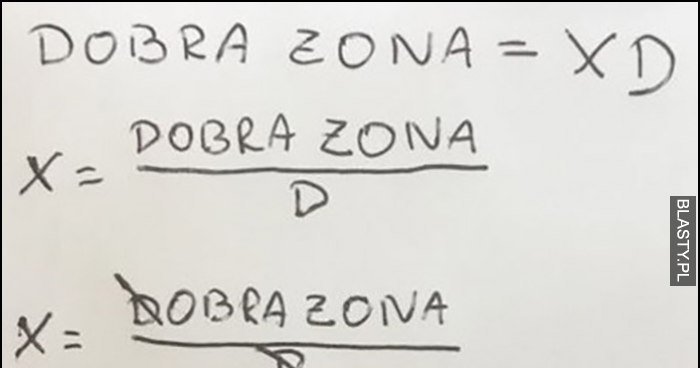 DOBRA ZONA = XD
X = DOBRA ZONA
D
X = DOBRA ZONA
D
BLASTY.PL